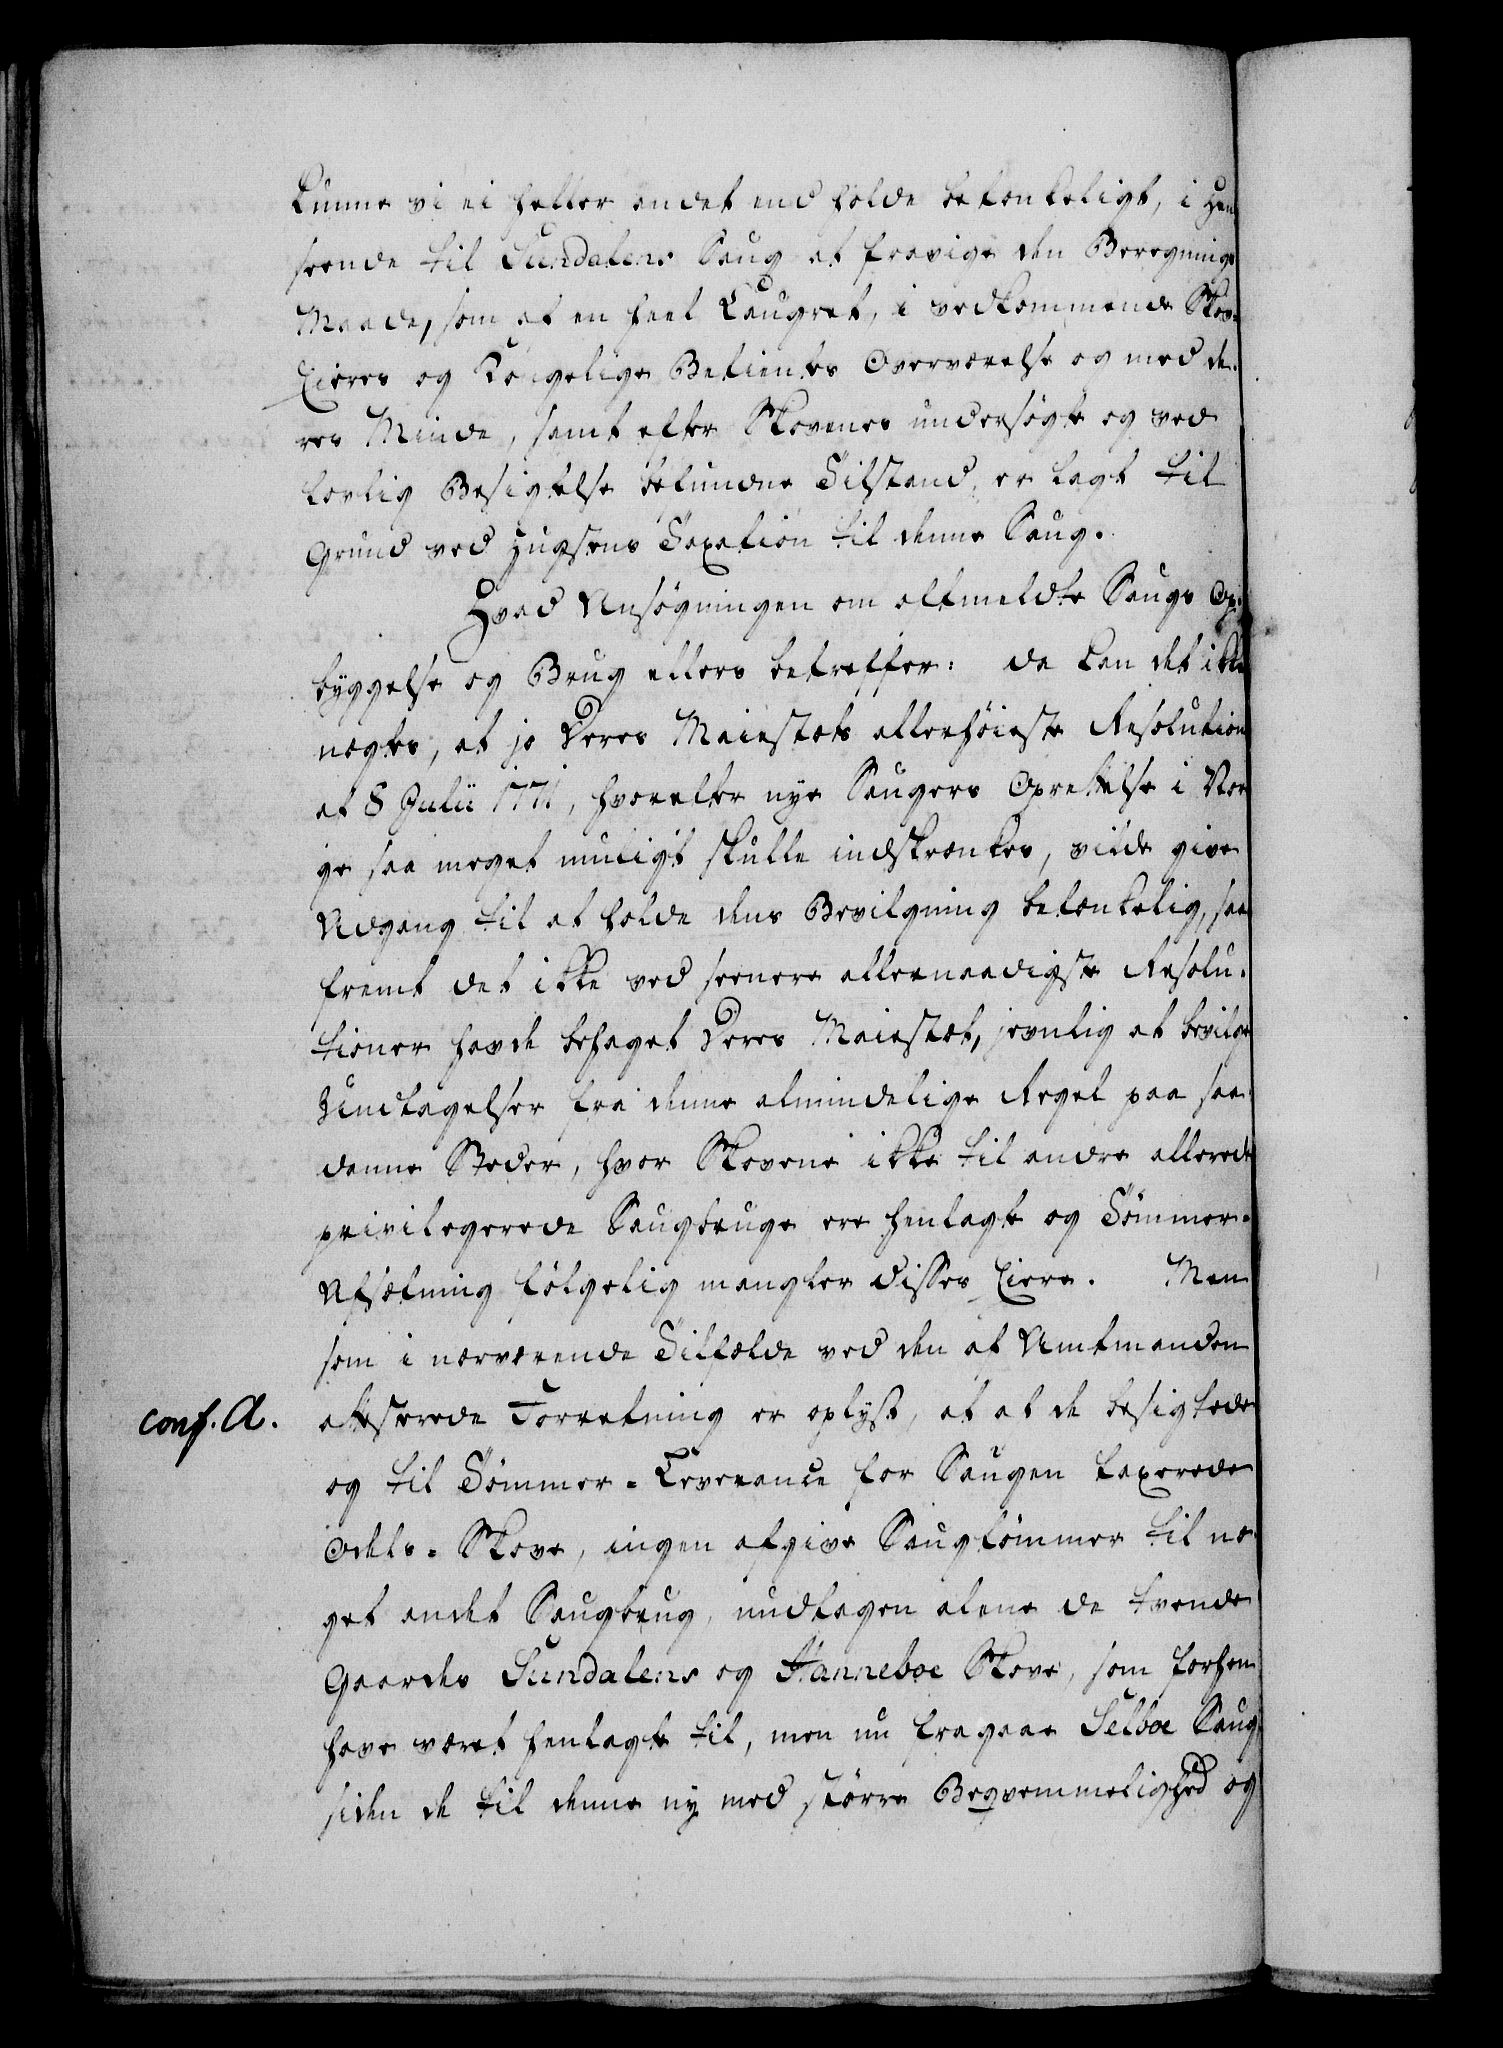 kunne vi ei heller andet end holde betænkeligt, i Hen-
seende til Sundalens Saug at fravige den Beregnings
Maade, som af en heel Laugret, i vedkommende Skov-
Eieres og Kongelige Betientes Overværelse og med de-
res Minde, samt efter Skovenes undersøgte og ved
lovlig Besigtelse befundne Tilstand, er lagt til
Grund ved Hugstens Taxation til denne Saug.
Hvad Ansøgningen om altmeldte Saugs Op-
byggelse og Brug ellers betreffer: da kan det ikke
nægtes, at jo Deres Maiestæts allerhøieste Resolution
af 8 Julii 1771, hvorefter nye Saugers Oprettelse i Nor-
ge saa meget muligt skulle indskrænkes, vilde give
Adgang til at holde dens Bevilgning betænkelig, saa-
fremt det ikke ved seenere allernaadigste Resolu-
tioner havde behaget Deres Maiestæt, jevnlig at bevilge
Undtagelser fra denne almindelige Regel paa saa-
danne Steder, hvor Skovene ikke til andre allerede
privilegerede Saugbruge ere henlagte og Tømmer-
Afsætning følgelig mangler disses Eiere. Men
som i nærværende Tilfælde ved den af Amtmanden
conf. A. attesterede Forretning er oplyst, at af de besigtede
og til Tømmer-Leverance for Saugen taxerede
Odels-Skove, ingen afgive Saugtømmer til no-
get andet Saugbrug, undtagen alene de tvende
Gaardes Sundalens og Hanneboe Skove, som forhen
have været henlagte til, men nu fragaae Selboe Saug
siden de til denne ny med større Beqvemmelighed og